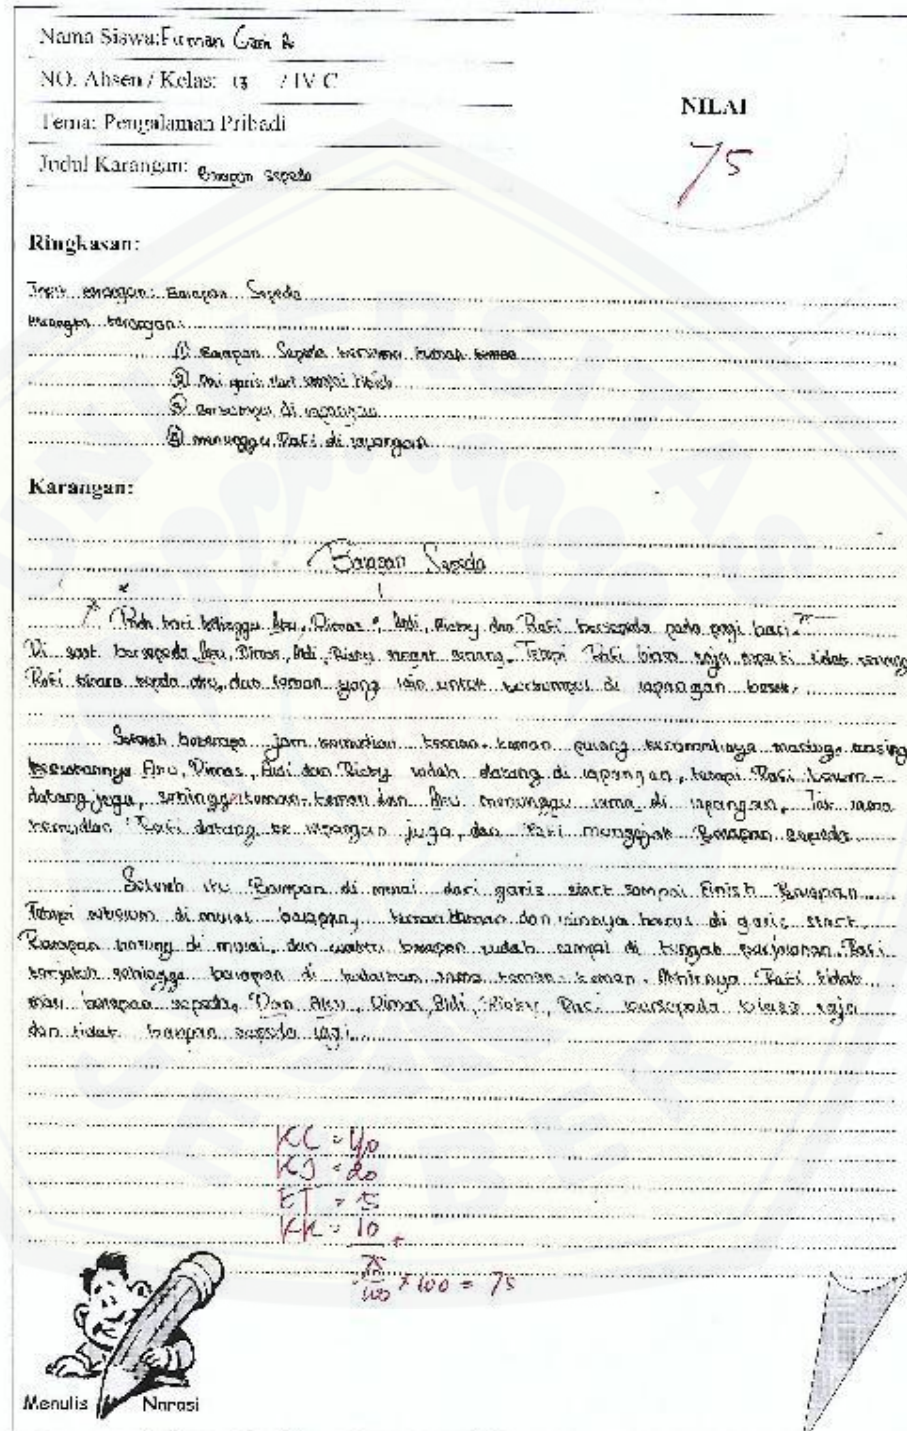 Nama Siswa: Firman
NO. Absen / Kelas: 13 / IV C
Tema: Pengalaman Pribadi
Judul Karangan: Balapan sepeda
NILAI
75
Ringkasan:
karangan: Balapan Sepeda
karangan:
① Balapan Sepeda
② Dari garis start sampai finish
③ di lapangan
④ menunggu Rafi di lapangan
Karangan:
Balapan Sepeda
Pada hari Minggu Aku, Dimas, Aldi, Ricky dan Rafi bersepeda pada pagi hari.
Di saat bersepeda Aku, Dimas, Aldi, Ricky sangat senang. Tetapi Rafi saja seperti tidak senang
Rafi aku, dan teman yang lain untuk berkumpul di lapangan besar.
Setelah beberapa jam kemudian teman-teman pulang kerumahnya masing-masing
Aku, Dimas, Aldi dan Ricky sudah datang di lapangan, tetapi Rafi belum
datang juga, sehingga teman-teman dan Aku menunggu lama di lapangan, Tak lama
kemudian Rafi datang ke lapangan juga, dan Rafi mengajak Balapan sepeda
Setelah itu Balapan di mulai dari garis start sampai finish Balapan
Tetapi sebelum di mulai balapan, dan harus di garis start.
Balapan di mulai, dan waktu balapan sudah sampai di tengah perjalanan Rafi
terjatuh sehingga balapan di sama teman-teman. Akhirnya Rafi tidak
mau balapan sepeda, Dan Aku, Dimas, Aldi, Ricky, Rafi bersepeda biasa saja
dan tidak balapan sepeda lagi.
KC = 40
KJ = 20
ET = 5
KK = 10 +
75
100 × 100 = 75
Menulis Narasi
UNIVERSITAS
JEMBER